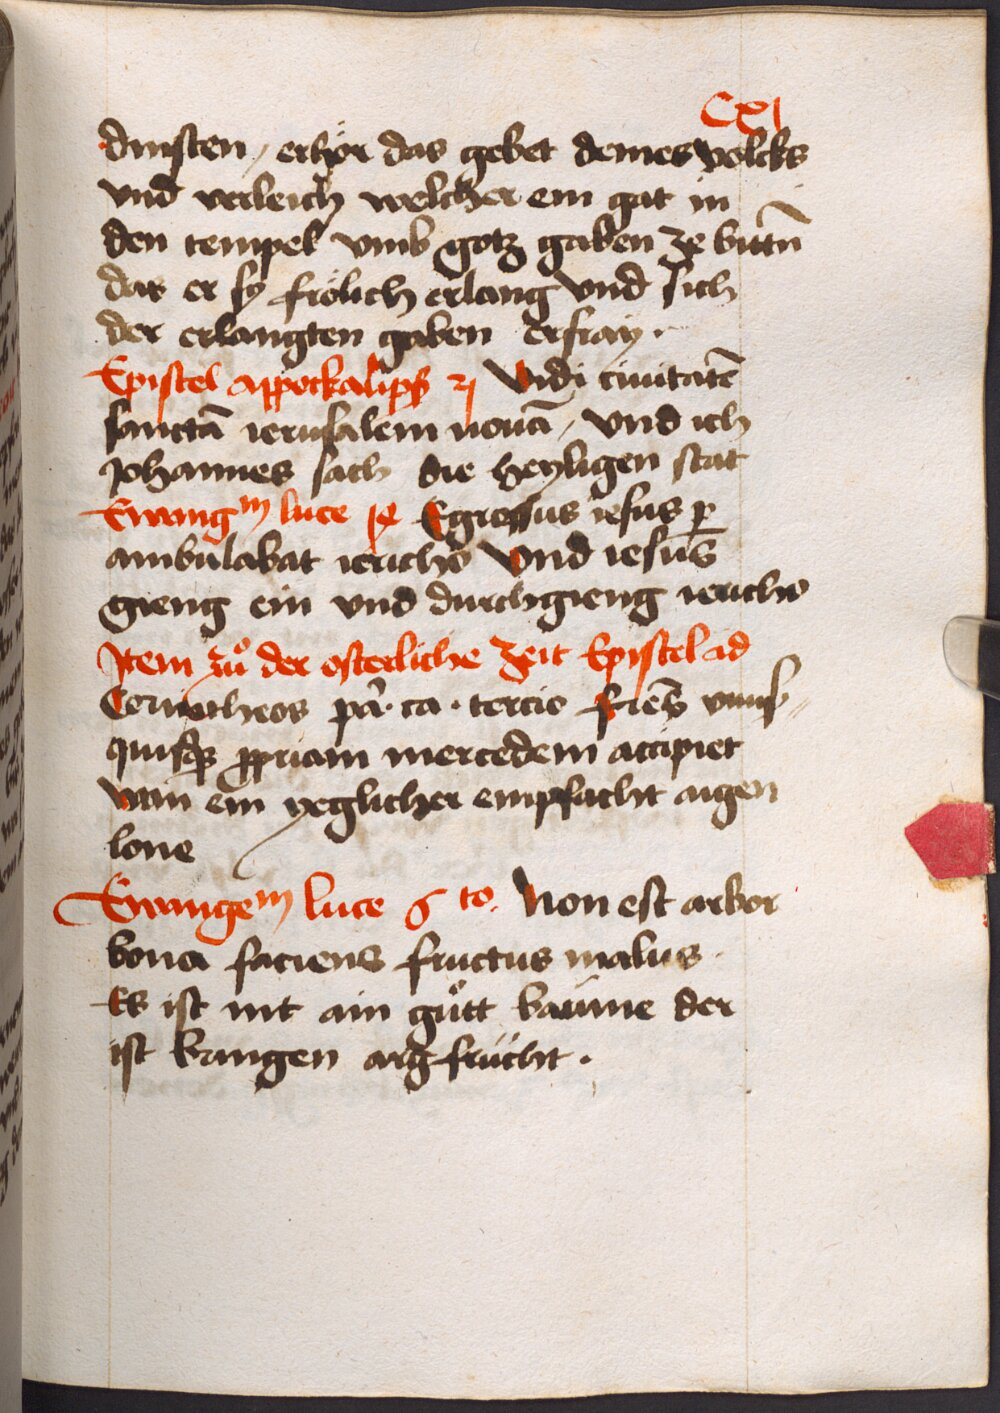 CXI
dinsten / erhör das gebet deines volcks
vnd verleich welcher ein gat in
den tempel vmb gotz gaben ze bittn̄
das er sy frölich erlang vnd sich
der erlangten gaben erfräy .
Epistel appockalips 21 Vidi ciuitatē
sanctā ierusalem nouā / vnd ich
Johannes sach die heyligen stat
Ewangm luce 19 Egressus iesus ꝑ
ambulabat iericho vnd iesus
gieng ein vnd durchgieng iericho
Item zuͦ der osterliche zeit Epistel ad
Corintheos pͥ . ca . tercio vnus
quisqꝫ ꝓpriam mercedem accipiet
wan̄ ein yeglicher empfacht aigen
lone
Ewangem luce 6 to . Non est arbor
bona faciens fructus malus .
Es ist nit ain guͦtt baume der
ist bringen arg frücht .